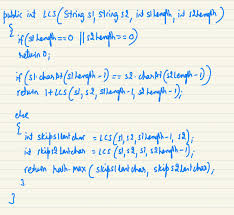 public int LCS(String s1, String s2, int s1length, int s2length)
{
if(s1length==0 || s2length==0)
return 0;
if (s1.charAt(s1length-1) == s2.charAt(s2length-1))
return 1+LCS(s1, s2, s1length-1, s2length-1);
else
{
int skips1lastchar = LCS(s1, s2, s1length-1, s2);
int skips2lastchar = LCS(s1, s2, s1, s2length-1);
return math.max(skips1lastchar, skips2lastchar);
}
}